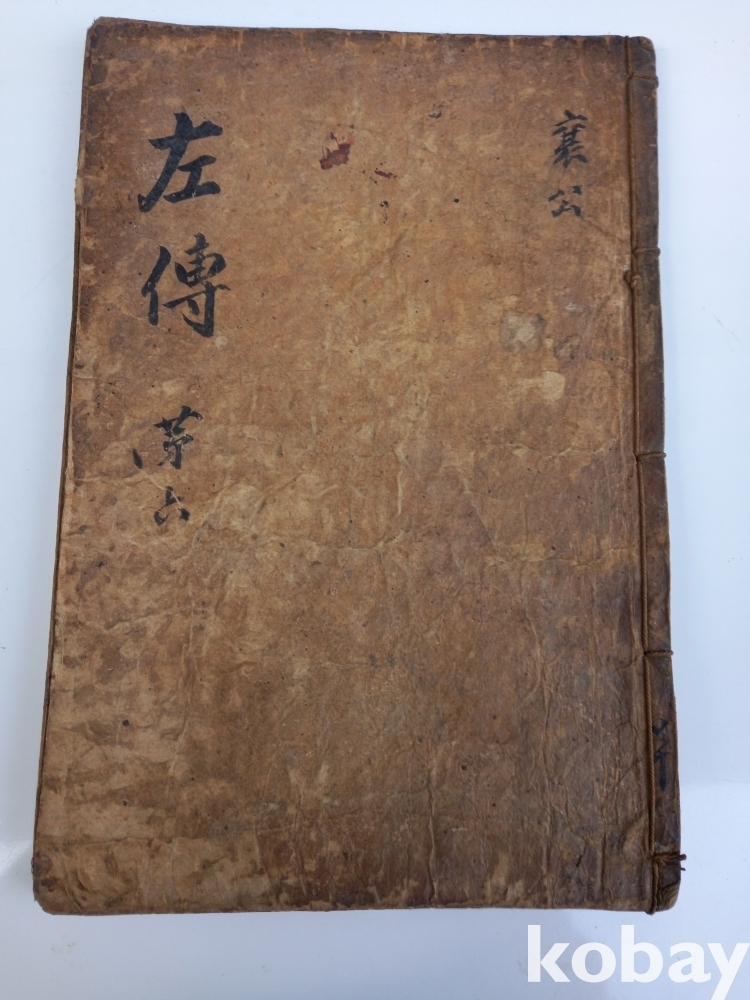 襄公
左傳 苐六
kobay